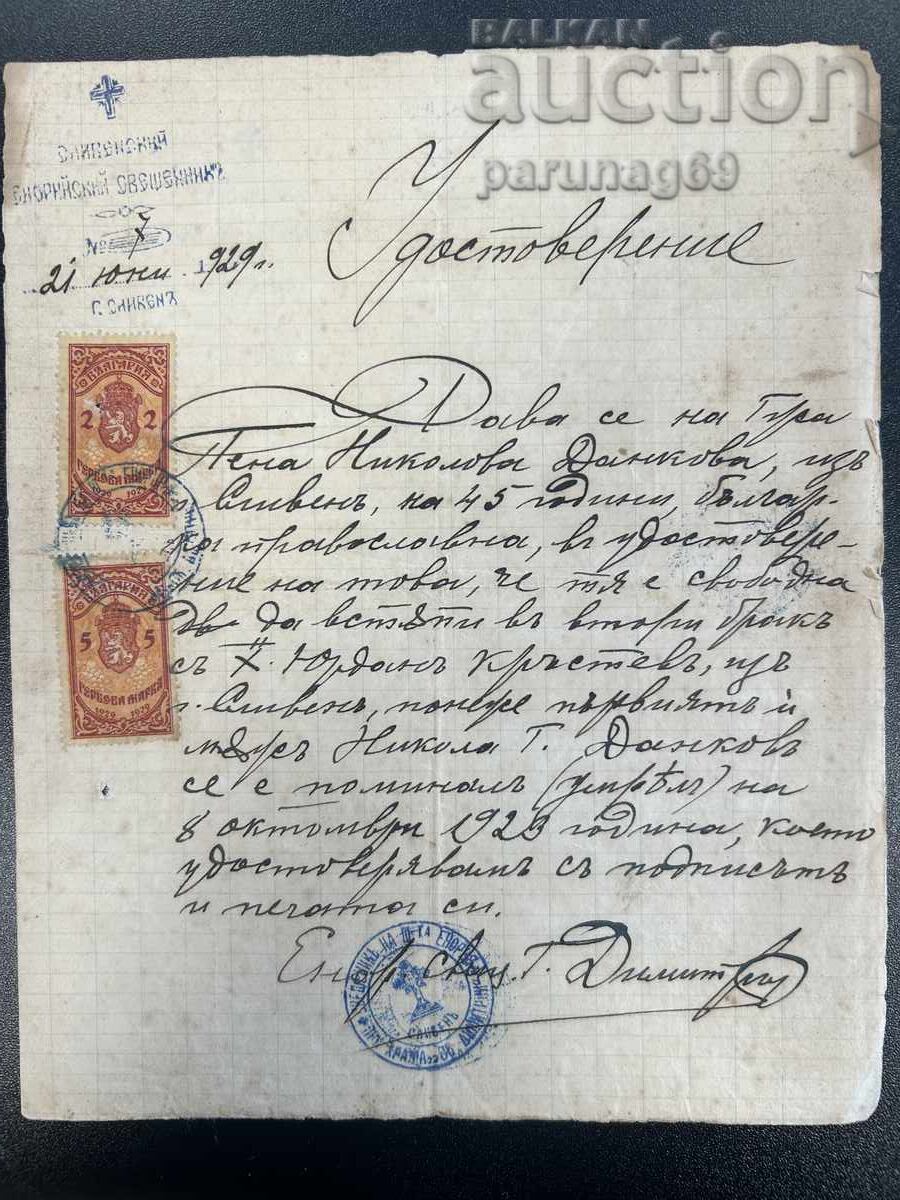 BALKAN
auction
parunag69
СЛИВЕНСКИЙ
ЕНОРИЙСКИЙ СВЕЩЕННИКЪ
№ 7
21 юни 1929 г.
Г. СЛИВЕНЪ
Удостоверение
БЪЛГАРИЯ
2 2
ГЕРБОВА МАРКА
1929 1929
БЪЛГАРИЯ
5 5
ГЕРБОВА МАРКА
1929 1929
Дава се на Гура
Пена Николова Данкова, изъ
г. Сливенъ, на 45 години, българ-
ка православна, в удостовере-
ние на това, че тя е свободна
да встѫпи въ втори бракъ
съ Х. Юрданъ Кръстевъ, изъ
г. Сливенъ, понеже първиятъ ѝ
мѫжъ Никола Г. Данковъ
се е поминалъ (умрѣлъ) на
8 октомври 1923 година, което
удостоверявамъ съ подписътъ
и печата си.
Енор. свещ. Г. Димитровъ
НА ШЕТА ЕНОРИЯ ПРИ ХРАМА „СВ. ДИМИТРИЙ
СЛИВЕНЪ